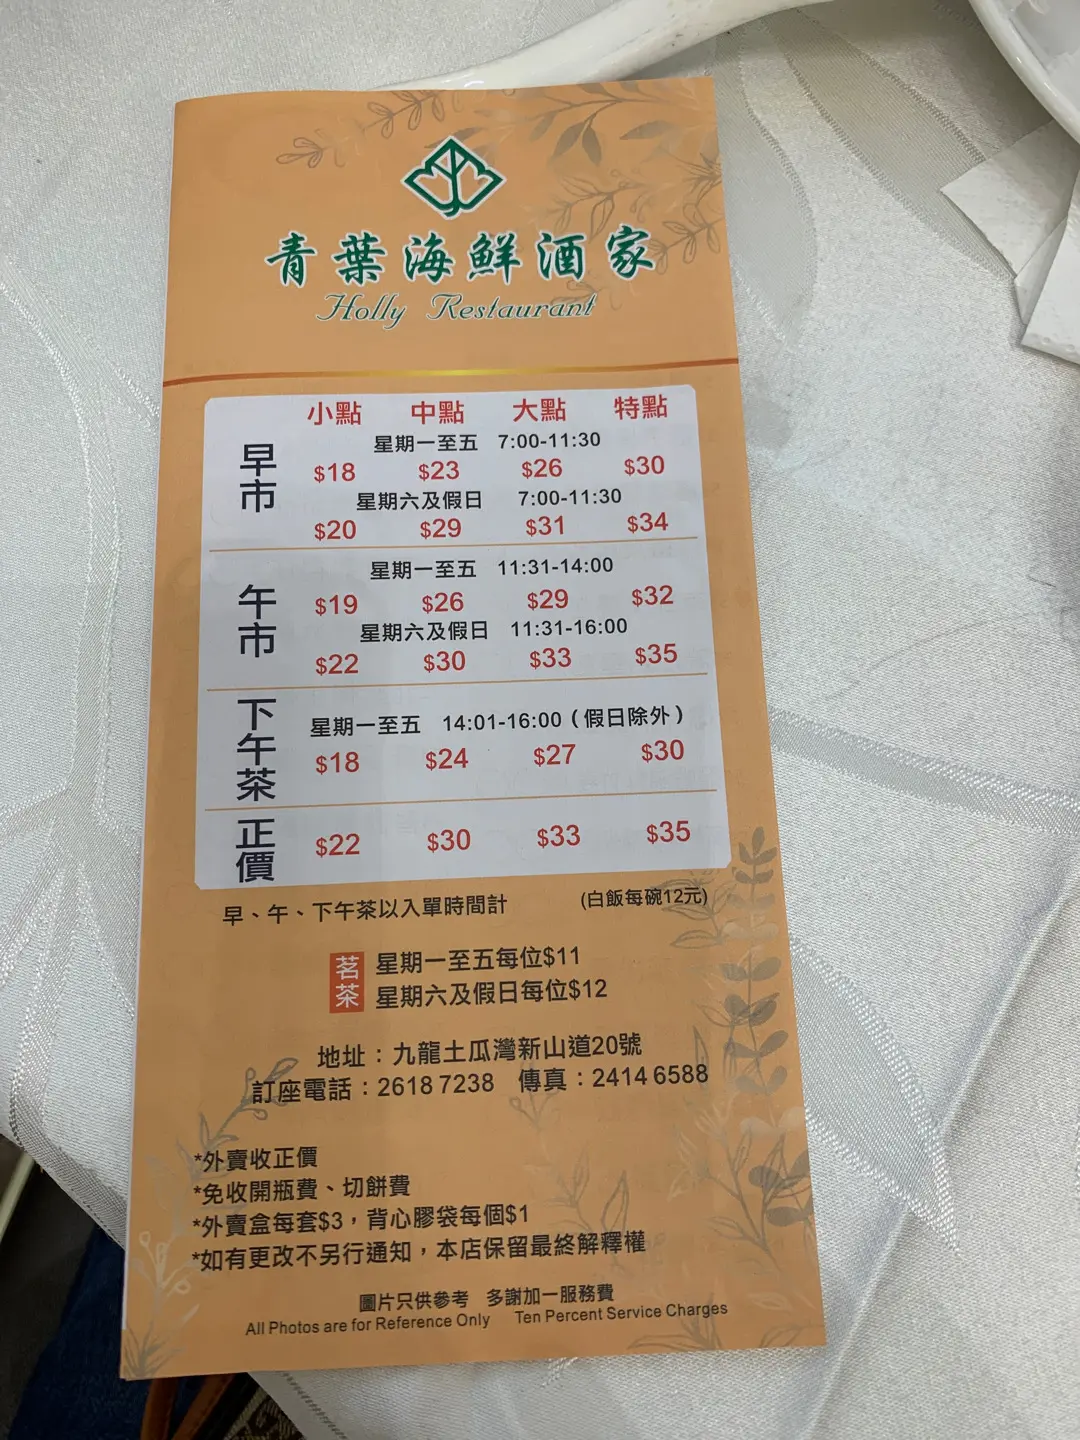 青葉海鮮酒家
Holly Restaurant
小點 中點 大點 特點
早市
星期一至五 7:00-11:30
$18 $23 $26 $30
星期六及假日 7:00-11:30
$20 $29 $31 $34
午市
星期一至五 11:31-14:00
$19 $26 $29 $32
星期六及假日 11:31-16:00
$22 $30 $33 $35
下午茶
星期一至五 14:01-16:00(假日除外)
$18 $24 $27 $30
正價
$22 $30 $33 $35
早、午、下午茶以入單時間計 (白飯每碗12元)
茗茶
星期一至五每位$11
星期六及假日每位$12
地址：九龍土瓜灣新山道20號
訂座電話：2618 7238 傳真：2414 6588
*外賣收正價
*免收開瓶費、切餅費
*外賣盒每套$3，背心膠袋每個$1
*如有更改不另行通知，本店保留最終解釋權
圖片只供參考 多謝加一服務費
All Photos are for Reference Only Ten Percent Service Charges